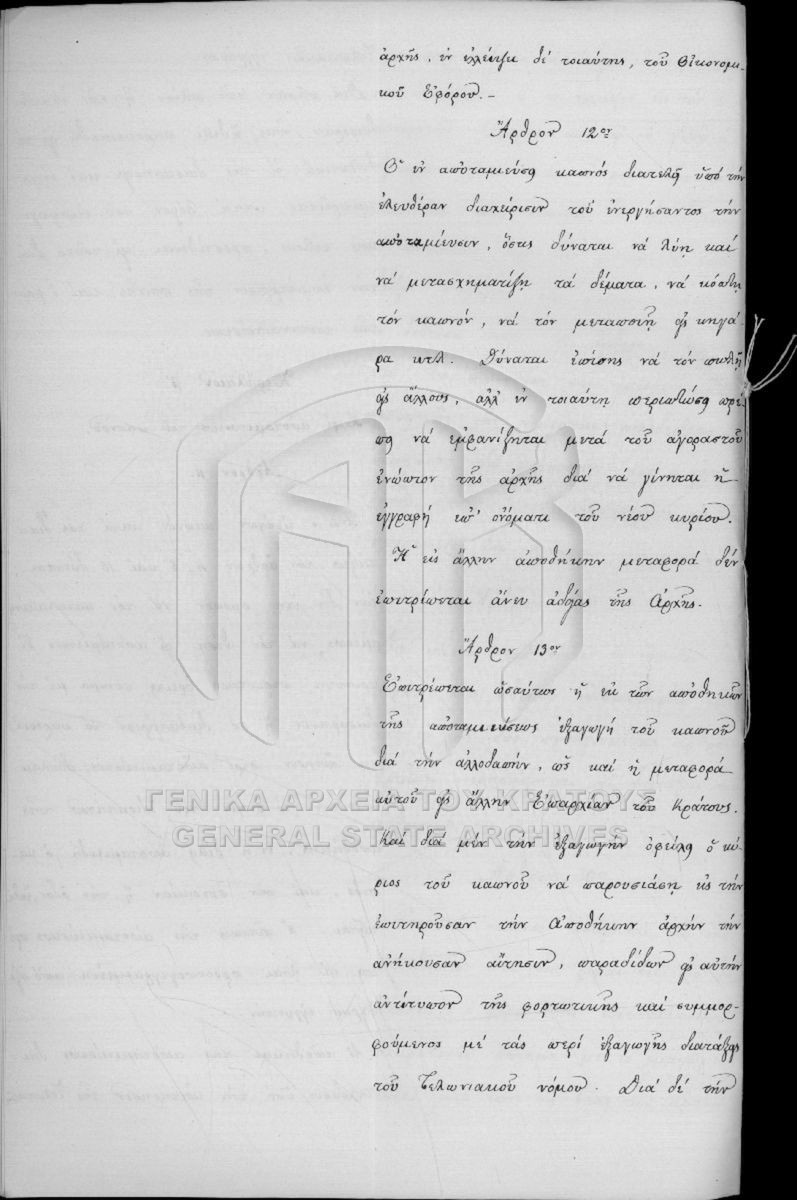 ἀρχῆς, ἐν ἐλλείψει δέ τοιαύτης, τοῦ Οἰκονομι-
κοῦ Ἐφόρου. -
Ἄρθρον 12ον
Ὁ ἐν ἀποταμιεύσει καπνός διατελεῖ ὑπό τήν
ἐλευθέραν διαχείρισιν τοῦ ἐνεργήσαντος τήν
ἀποταμίευσιν, ὅστις δύναται νά λύῃ καί
νά μετασχηματίζῃ τά δέματα, νά κόπτῃ
τόν καπνόν, νά τόν μεταποιῇ εἰς σιγά-
ρα κτλ. Δύναται ἐπίσης νά τόν πωλῇ
εἰς ἄλλους, ἀλλ' ἐν τοιαύτῃ περιπτώσει πρέ-
πει νά ἐμφανίζηται μετά τοῦ ἀγοραστοῦ
ἐνώπιον τῆς ἀρχῆς διά νά γίνηται ἡ
ἐγγραφή ἐπ' ὀνόματι τοῦ νέου κυρίου.
Ἡ εἰς ἄλλην ἀποθήκην μεταφορά δέν
ἐπιτρέπεται ἄνευ ἀδείας τῆς Ἀρχῆς.
Ἄρθρον 13ον
Ἐπιτρέπεται ὡσαύτως ἡ ἐκ τῶν ἀποθηκῶν
τῆς ἀποταμιεύσεως ἐξαγωγή τοῦ καπνοῦ
διά τήν ἀλλοδαπήν, ὡς καί ἡ μεταφορά
αὐτοῦ εἰς ἄλλην Ἐπαρχίαν τοῦ Κράτους.
Καί διά μέν τήν ἐξαγωγήν ὀφείλει ὁ κύ-
ριος τοῦ καπνοῦ νά παρουσιάσῃ εἰς τήν
ἐπιτηροῦσαν τήν Ἀποθήκην ἀρχήν τήν
ἀνήκουσαν αἴτησιν, παραδίδων εἰς αὐτήν
ἀντίτυπον τῆς φορτωτικῆς καί συμμορ-
φούμενος μέ τάς περί ἐξαγωγῆς διατάξεις
τοῦ Τελωνιακοῦ νόμου. Διά δέ τήν
ΓΕΝΙΚΑ ΑΡΧΕΙΑ ΤΟΥ ΚΡΑΤΟΥΣ
GENERAL STATE ARCHIVES